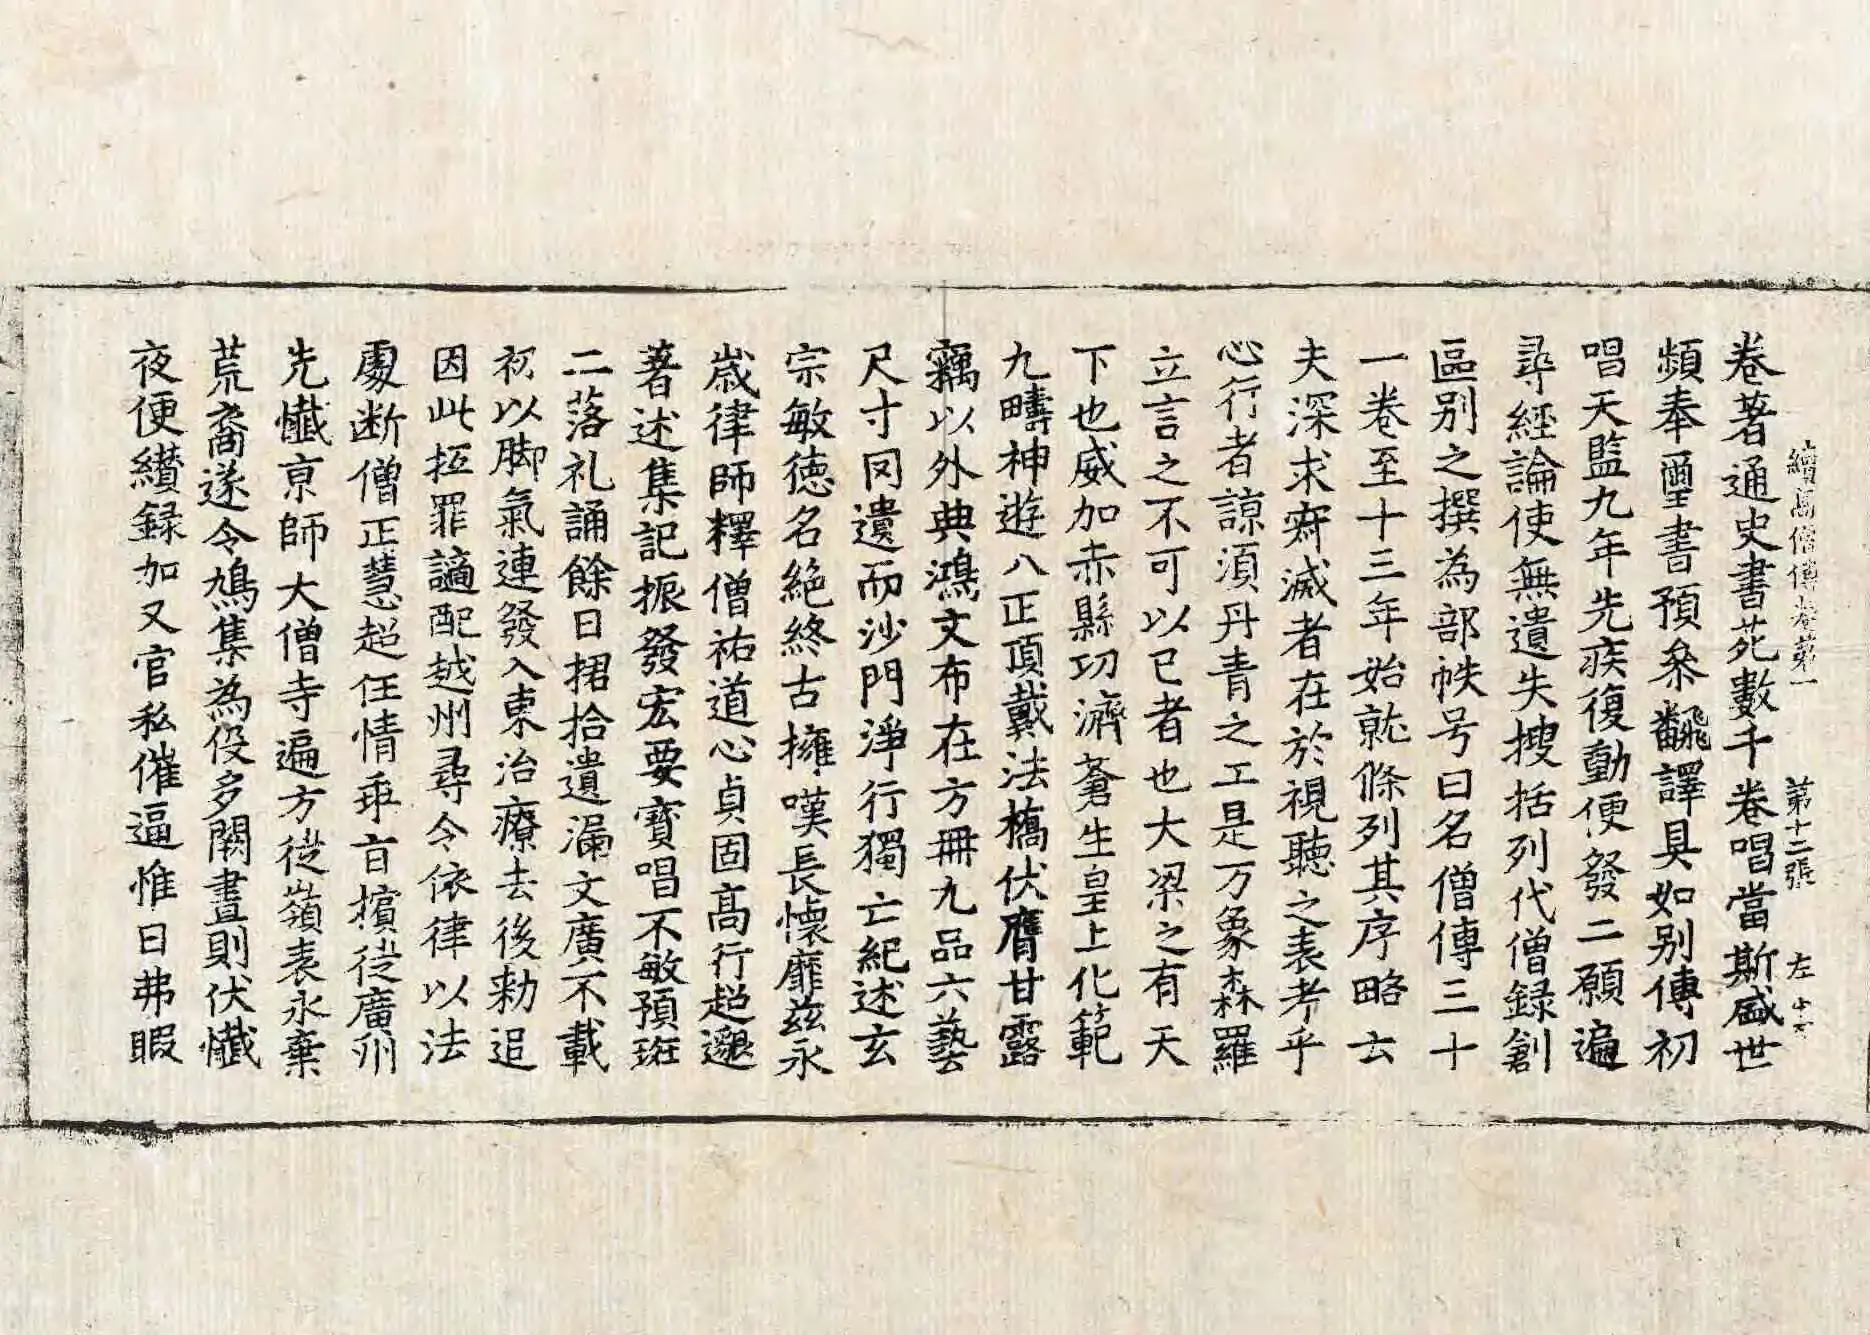 續高僧傳卷苐一 第十二張 左
卷著通史書苑數千卷唱當斯盛世
頻奉璽書預叅飜譯具如别傳初
唱天監九年先疾復動便發二願遍
尋經論使無遺失搜括列代僧録創
區别之撰為部帙号曰名僧傳三十
一卷至十三年始就條列其序略云
夫深求寂滅者在於視聽之表考乎
心行者諒湏丹青之工是万象森羅
立言之不可以已者也大梁之有天
下也威加赤縣功濟蒼生皇上化範
九疇神遊八正頂戴法橋伏膺甘露
竊以外典鴻文布在方冊九品六藝
尺寸罔遺而沙門淨行獨亡紀述玄
宗敏徳名絶終古擁嘆長懷靡兹永
歳律師釋僧祐道心貞固髙行超邈
著述集記振發宏要寳唱不敏預班
二落礼誦餘日捃拾遺漏文廣不載
初以脚氣連發入東治療去後勑追
因此抵罪謫配越州尋令依律以法
處断僧正慧超任情乖㫖擯徙廣州
先懺京師大僧寺遍方徙嶺表永棄
荒裔遂令鳩集為役多闕晝則伏懺
夜便纉録加又官私催逼惟日弗暇